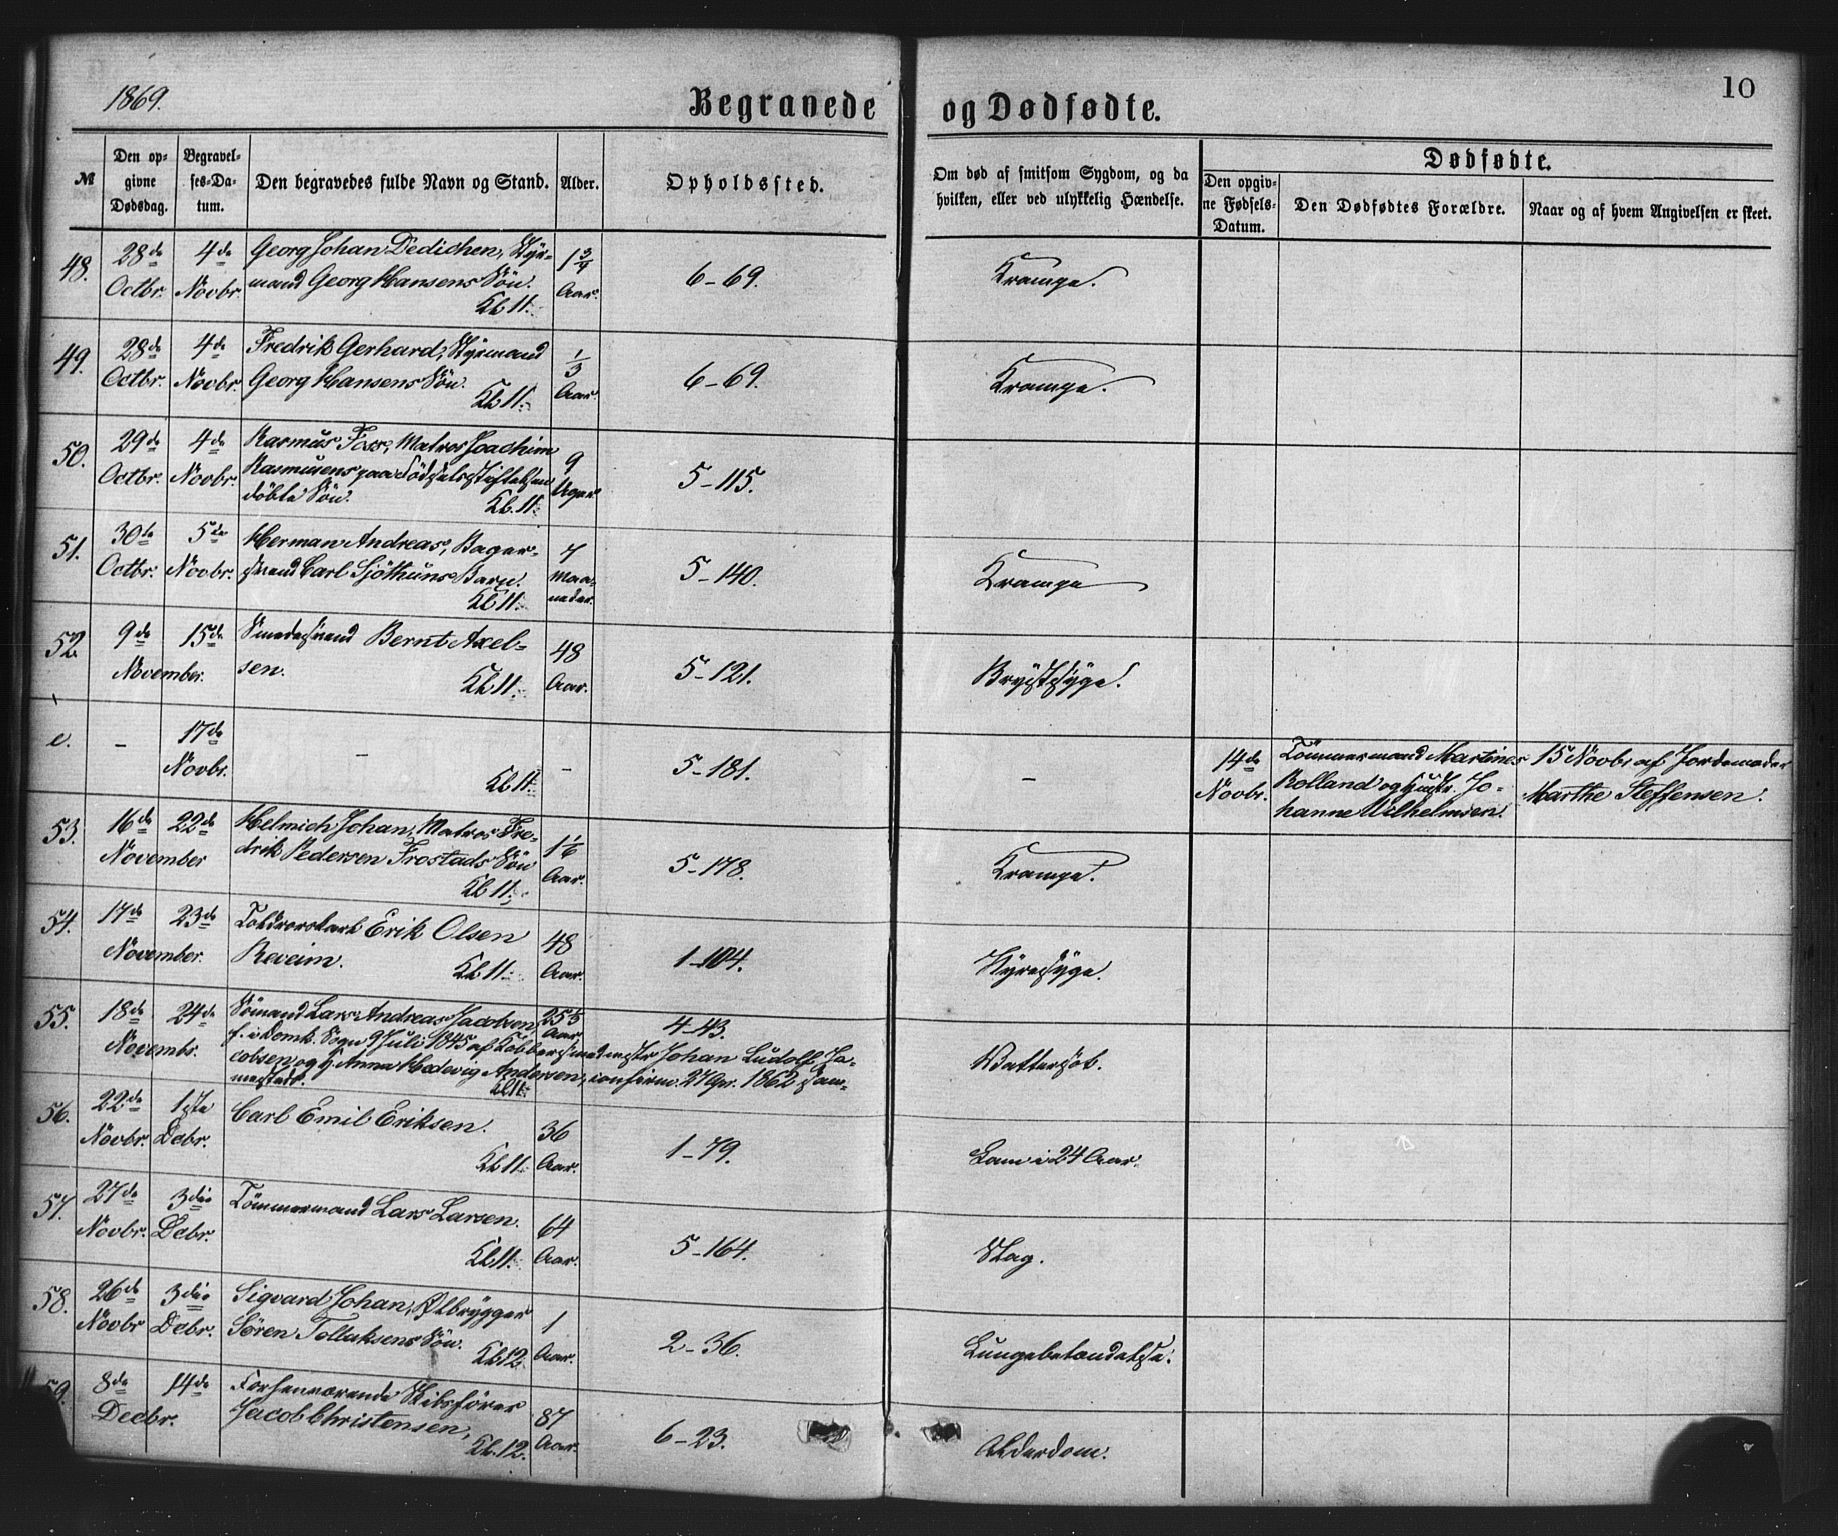 1869.
Begravede og Dødfødte.
10
№
Den opgivne Dødsdag.
Begravelses-Datum.
Den begravedes fulde Navn og Stand.
Alder.
Opholdssted.
Om død af smitsom Sygdom, og da hvilken, eller ved ulykkelig Hændelse.
Dødfødte.
Den opgivne Fødsels-Datum.
Den Dødfødtes Forældre.
Naar og af hvem Angivelsen er skeet.
48. 28de Octbr. 4de Novbr. Georg Johan Dedichen, Styr-
mand Georg Hansens Søn. Kl. 11. 1 3/4 Aar. 6-69. Krampe.
49. 28de Octbr. 4de Novbr. Fredrik Gerhard, Styrmand
Georg Hansens Søn. Kl. 11. 1/3 Aar. 6-69. Krampe.
50. 29de Octbr. 4de Novbr. Rasmus Foss, Matros Joachim
Rasmusens paa Fødselsstiftelsen
døbte Søn. Kl. 11. 9 Uger 5-115.
51. 30te Octbr. 5te Novbr. Herman Andreas, Bager-
svend Carl Sjöthuns Barn. Kl. 11. 7 Maaneder. 5-140. Krampe
52 9de 15de November. Smedesvend Bernt Axel-
sen. Kl. 11. 48 Aar. 5-121. Brystsyge.
e. - 17de Novbr. - Kl. 11. - 5-181. - 14de Novbr. Tømmermand Martines
Rolland og Hustr. Jo-
hanne Wilhelmsen. 15 Novbr af Jordemoder
Marthe Steffensen.
53. 16de 22de November Helmich Johan, Matros Fre-
drik Pedersen Frostads Søn Kl. 11. 1 1/6 Aar. 5-178. Krampe.
54. 17de 23de November. Toldrorskarl Erik Olsen
Reveim. Kl. 11. 48 Aar. 1-104. Nyresyge.
55. 18de 24de Novembr. Sømand Lars Andreas Jacobsen, 25 5 Aar 4-43.
f. i Domk. Sogn 9 Juli 1845 af Kobbersmedmestr Johan Ludolf Ja-
cobsen og H. Anna Hedevig Andersen, confirm. 27 Apr. 1862 sam-
mestedt. Kl. 11. Vattersot.
56. 22de Novbr. 1ste Debr. Carl Emil Eriksen. Kl. 11. 36 Aar. 1-79. Lam i 24 Aar.
57. 27de Novbr. 3die Debr. Tømmermand Lars Larsen. Kl. 11. 64 Aar. 5-164. Slag.
58. 26de Novbr 3die Debr. Sigvard Johan, Ølbrygger
Søren Tollaksens Søn. Kl. 12. 1 Aar. 2-36. Lungebetændelse.
59. 8de 14de Decbr. Forhenværende Skibsfører
Jacob Christensen, Kl. 12. 87 Aar. 6-23. Alderdom.